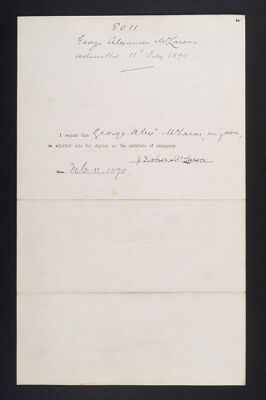 George Alexander McLaren
admitted 11th Feby 1890
I request that George Alexr McLaren, my son,
be admitted into the Asylum on the certificate of emergency.
McLaren
Date Feb 11 1890.